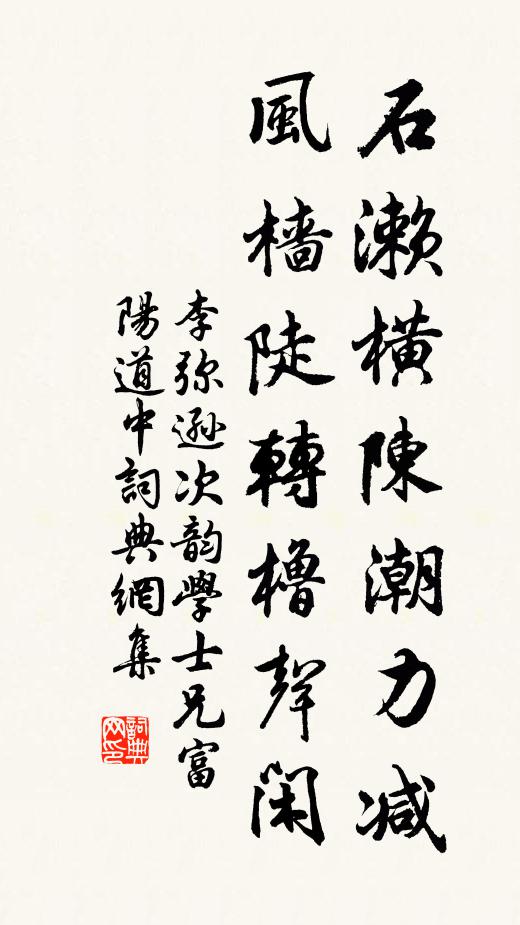 石瀨橫陳潮力減
風檣陡轉櫓聲閑
李弥遜次韵學士兄富
陽道中詞典網集
詞典
网印